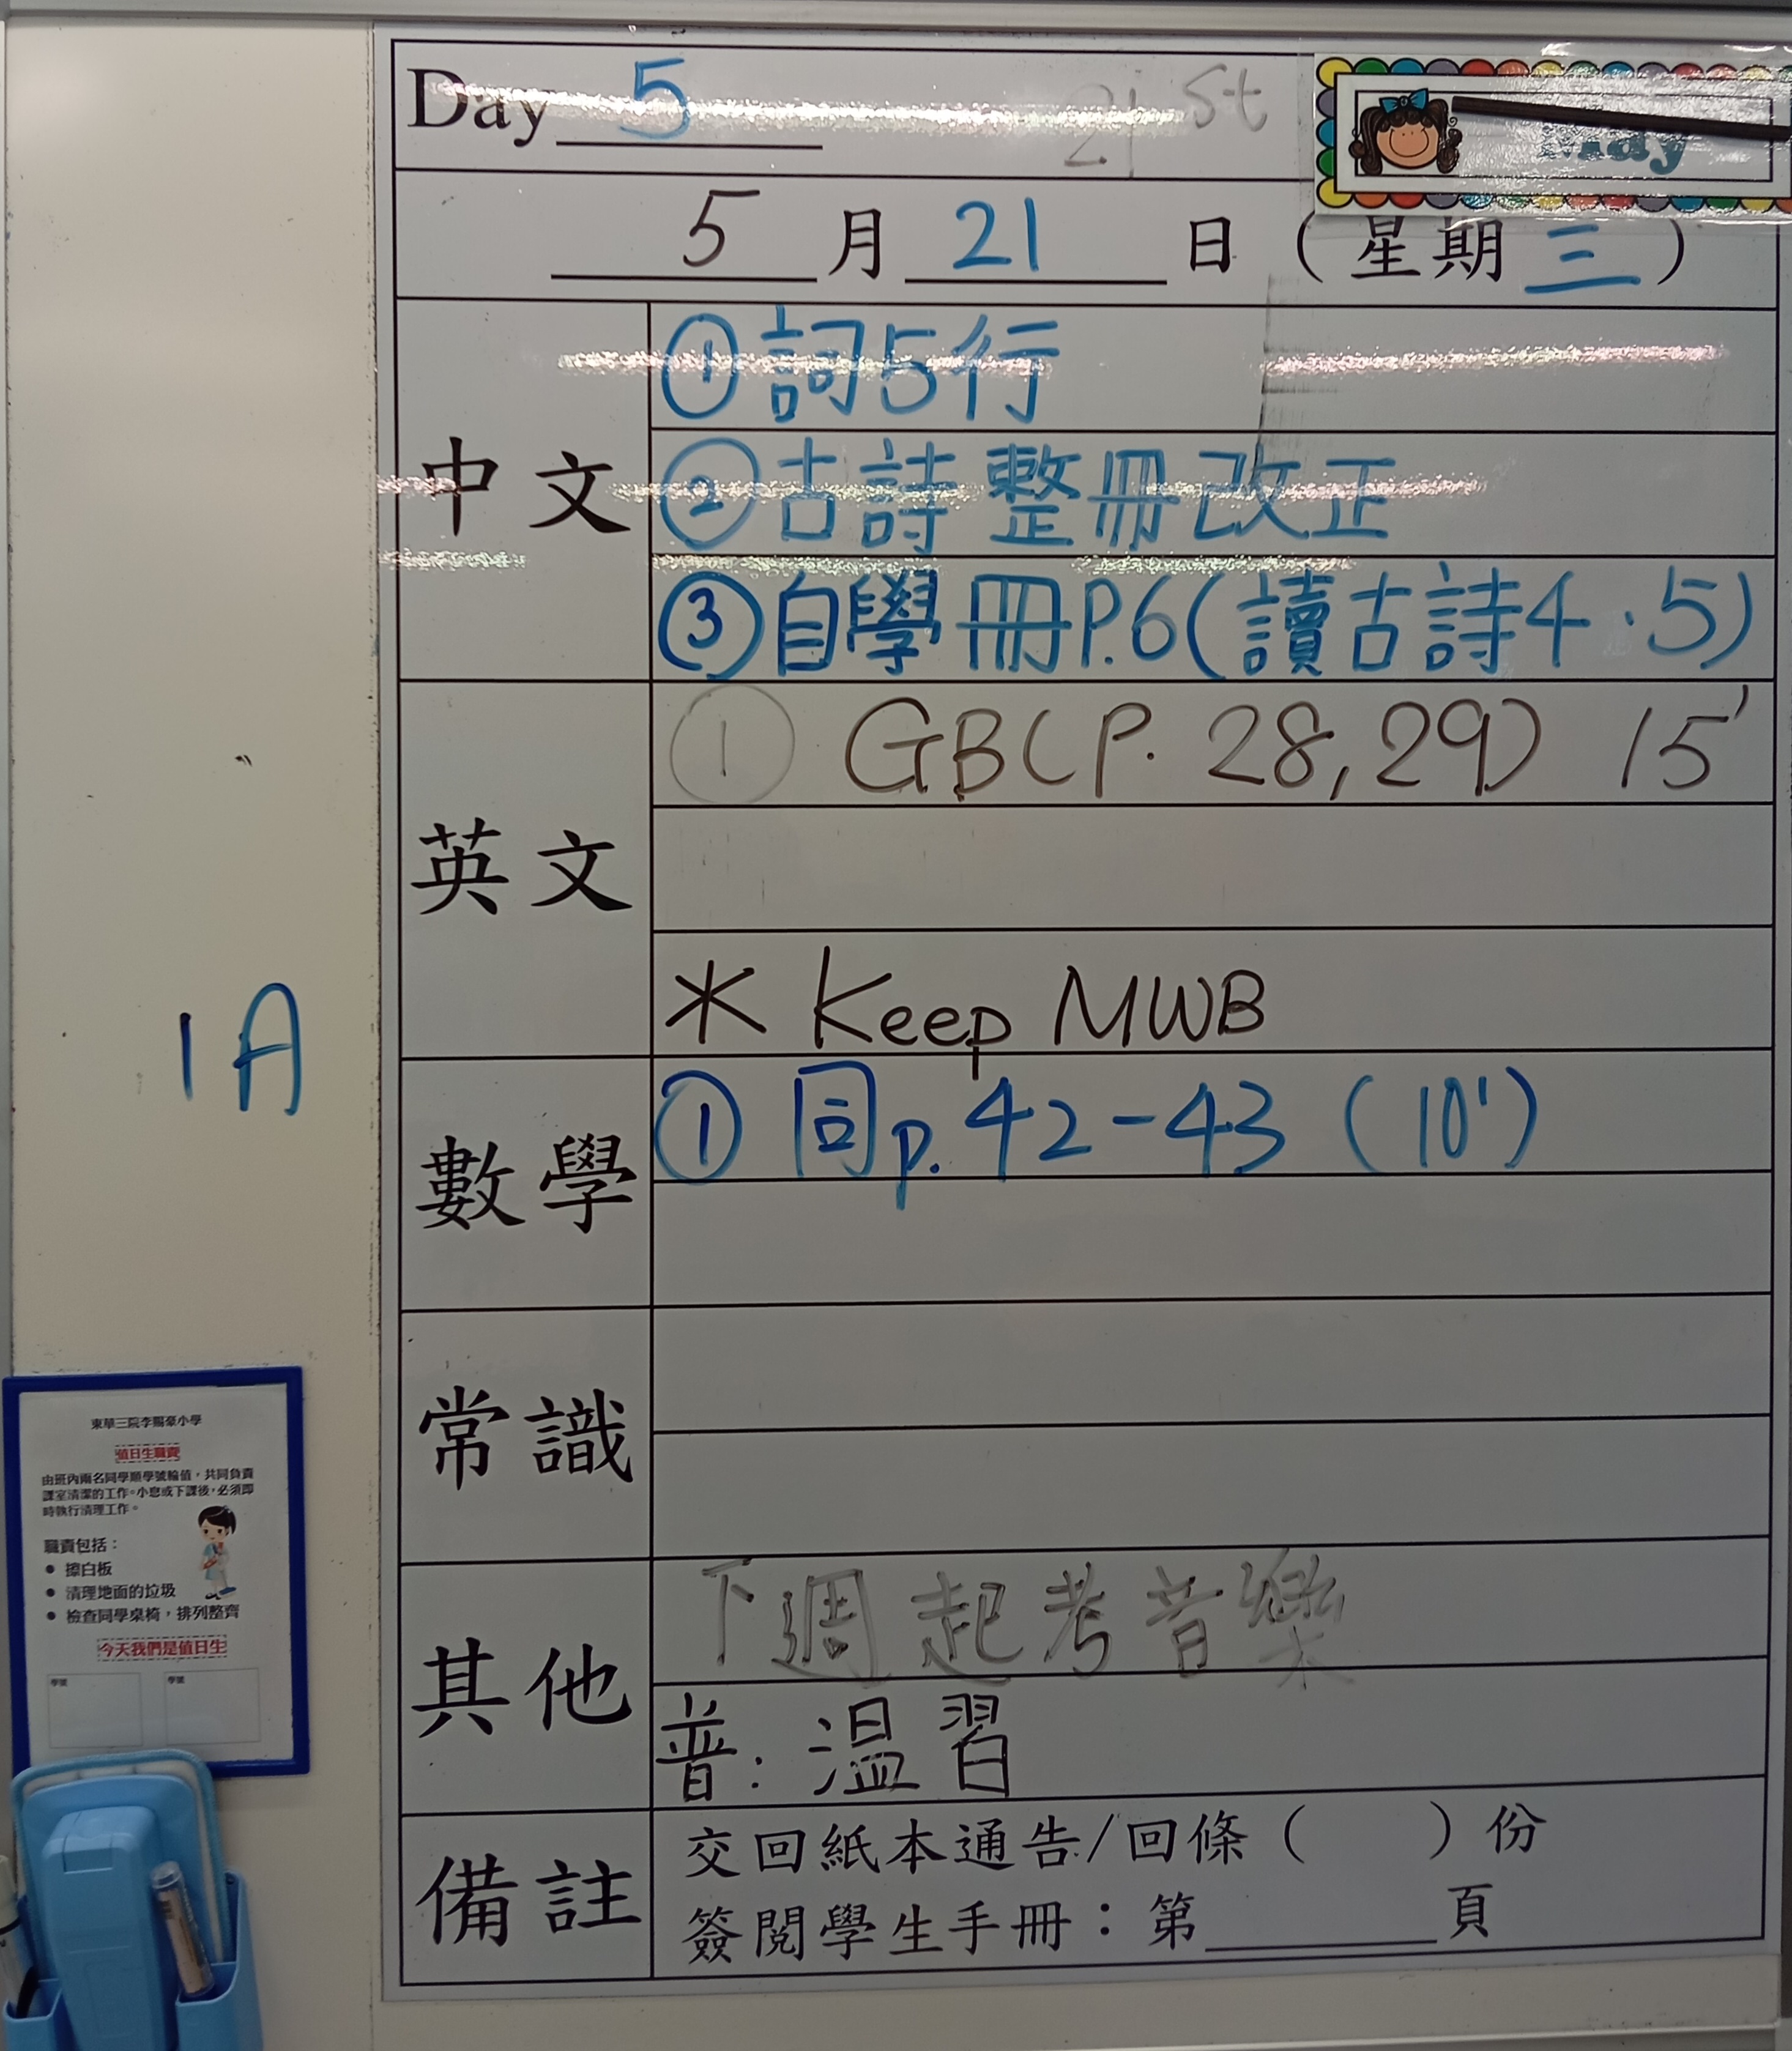 Day 5 21st
5月21日(星期三)
中文
①詞5行
②古詩整冊改正
③自學冊P.6(讀古詩4.5)
英文
① GB(P. 28,29) 15'
* Keep MWB
1A
數學
① 同p.42-43 (10')
常識
其他
下週起考音樂
普:溫習
備註
交回紙本通告/回條( )份
簽閱學生手冊:第______頁
東華三院李賜豪小學
值日生職責
由班內兩名同學順學號輪值,共同負責
課室清潔的工作。小息或下課後,必須即
時執行清理工作。
職責包括:
● 擦白板
● 清理地面的垃圾
● 檢查同學桌椅,排列整齊
今天我們是值日生
學號 學號